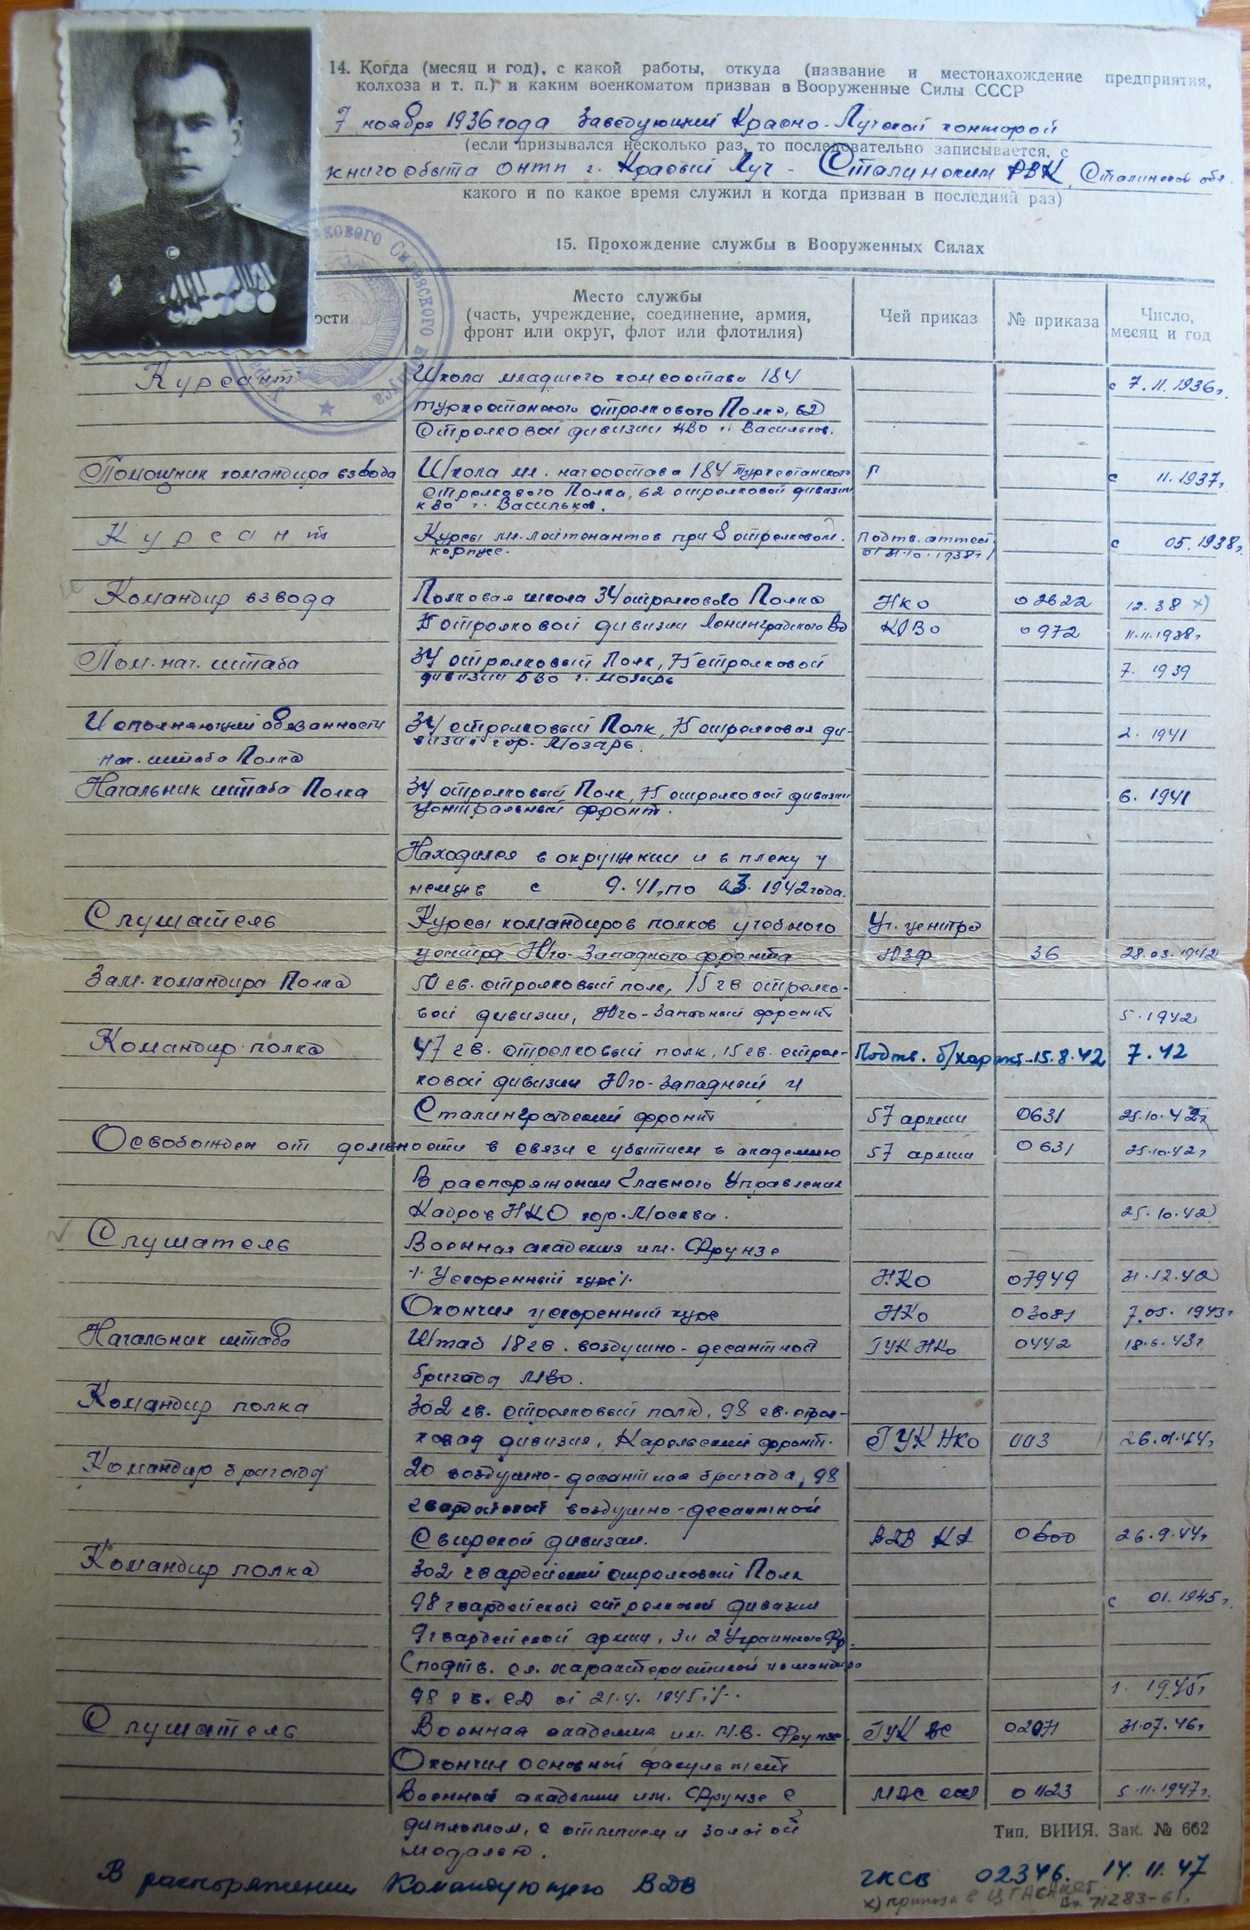 14. Когда (месяц и год), с какой работы, откуда (название и местонахождение предприятия,
колхоза и т. п.) и каким военкоматом призван в Вооруженные Силы СССР
7 ноября 1936 года Заведующий Красно-Лучской конторой
(если призывался несколько раз, то последовательно записывается, с
книгосбыта ОНТП г. Красный Луч - Сталинским РВК, Сталинской обл.
какого и по какое время служил и когда призван в последний раз)
15. Прохождение службы в Вооруженных Силах
ости
Место службы
(часть, учреждение, соединение, армия,
фронт или округ, флот или флотилия)
Чей приказ
№ приказа
Число,
месяц и год
Курсант Школа младшего комсостава 184 с 7.11.1936г.
туркестанского стрелкового Полка, 62
Стрелковой дивизии КВО г. Васильков.
Помощник командира взвода Школа мл. начсостава 184 Туркестанского с 11.1937г.
Стрелкового Полка, 62 стрелковой дивизии
КВО г. Васильков.
Курсант Курсы мл. лейтенантов при 8 стрелковом. Подтв. аттест. с 05.1938г.
корпусе.
Командир взвода Полковая школа 34 стрелкового Полка НКО 02622 12.38 х)
75 стрелковой дивизии Ленинградского ВО 0972 11.11.1938г
Пом. нач. штаба 34 стрелковый Полк, 75 стрелковой 7. 1939
дивизии БВО г. Мозырь
Исполняющий обязанности 34 стрелковый Полк, 75 стрелковая ди- 2. 1941
визия гор. Мозырь.
нач. штаба Полка
Начальник штаба Полка 34 стрелковый Полк, 75 стрелковой дивизии 6. 1941
Центральный фронт.
Находился в окружении и в плену у
немцев с 9.41, по 03. 1942 года.
Слушатель Курсы командиров полков учебного Уч. центра
центра Юго-Западного фронта ЮЗФ 36 28.03.1942
Зам. командира Полка 50 гв. стрелковый полк, 15 гв стрелко-
вой дивизии, Юго-Западный фронт 5. 1942
Командир полка 47 гв. стрелковый полк, 15 гв. стрел- Подтв. б/характ-15.8.42 7.42
ковой дивизии Юго-Западный и
Сталинградский фронт 57 армии 0631 25.10.42г
Освобожден от должности в связи с убытием в академию 57 армии 0631 25.10.42г
В распоряжении Главного Управления
Кадров НКО гор. Москва. 25.10.42
Слушатель Военная академия им. Фрунзе
/. Ускоренный курс/. НКО 07949 31.12.42
Окончил ускоренный курс НКО 03081 7.05. 1943г
Начальник штаба Штаб 18 гв. воздушно-десантной ГУК НКО 0442 18.6.43г
бригады МВО.
Командир полка 302 гв. стрелковый полк, 98 гв. стрел-
ковая дивизия, Карельский фронт. ГУК НКО 003 26.01.44г.
Командир бригады 20 воздушно-десантная бригада, 98
гвардейской воздушно-десантной
Свирской дивизии. ВДВ КА 0600 26.9.44г.
Командир полка 302 гвардейский стрелковый Полк
98 гвардейской стрелковой дивизии с 01.1945г.
9 гвардейской армии, 3 и 2 Украинского Фр.
(подтв. сл. характеристикой командира
98 гв. СД от 21.4. 1945г/. 1. 1945г
Слушатель Военная академия им. М.В. Фрунзе ГУК ВС 31.07.46г.
Окончил основной факультет
Военной академии им. Фрунзе с МВС 01123 5.11.1947г.
дипломом, с отличием и золотой
медалью.
Тип. ВИИЯ. Зак. № 662
В распоряжении Командующего ВДВ гксв 02346. 14.11.47